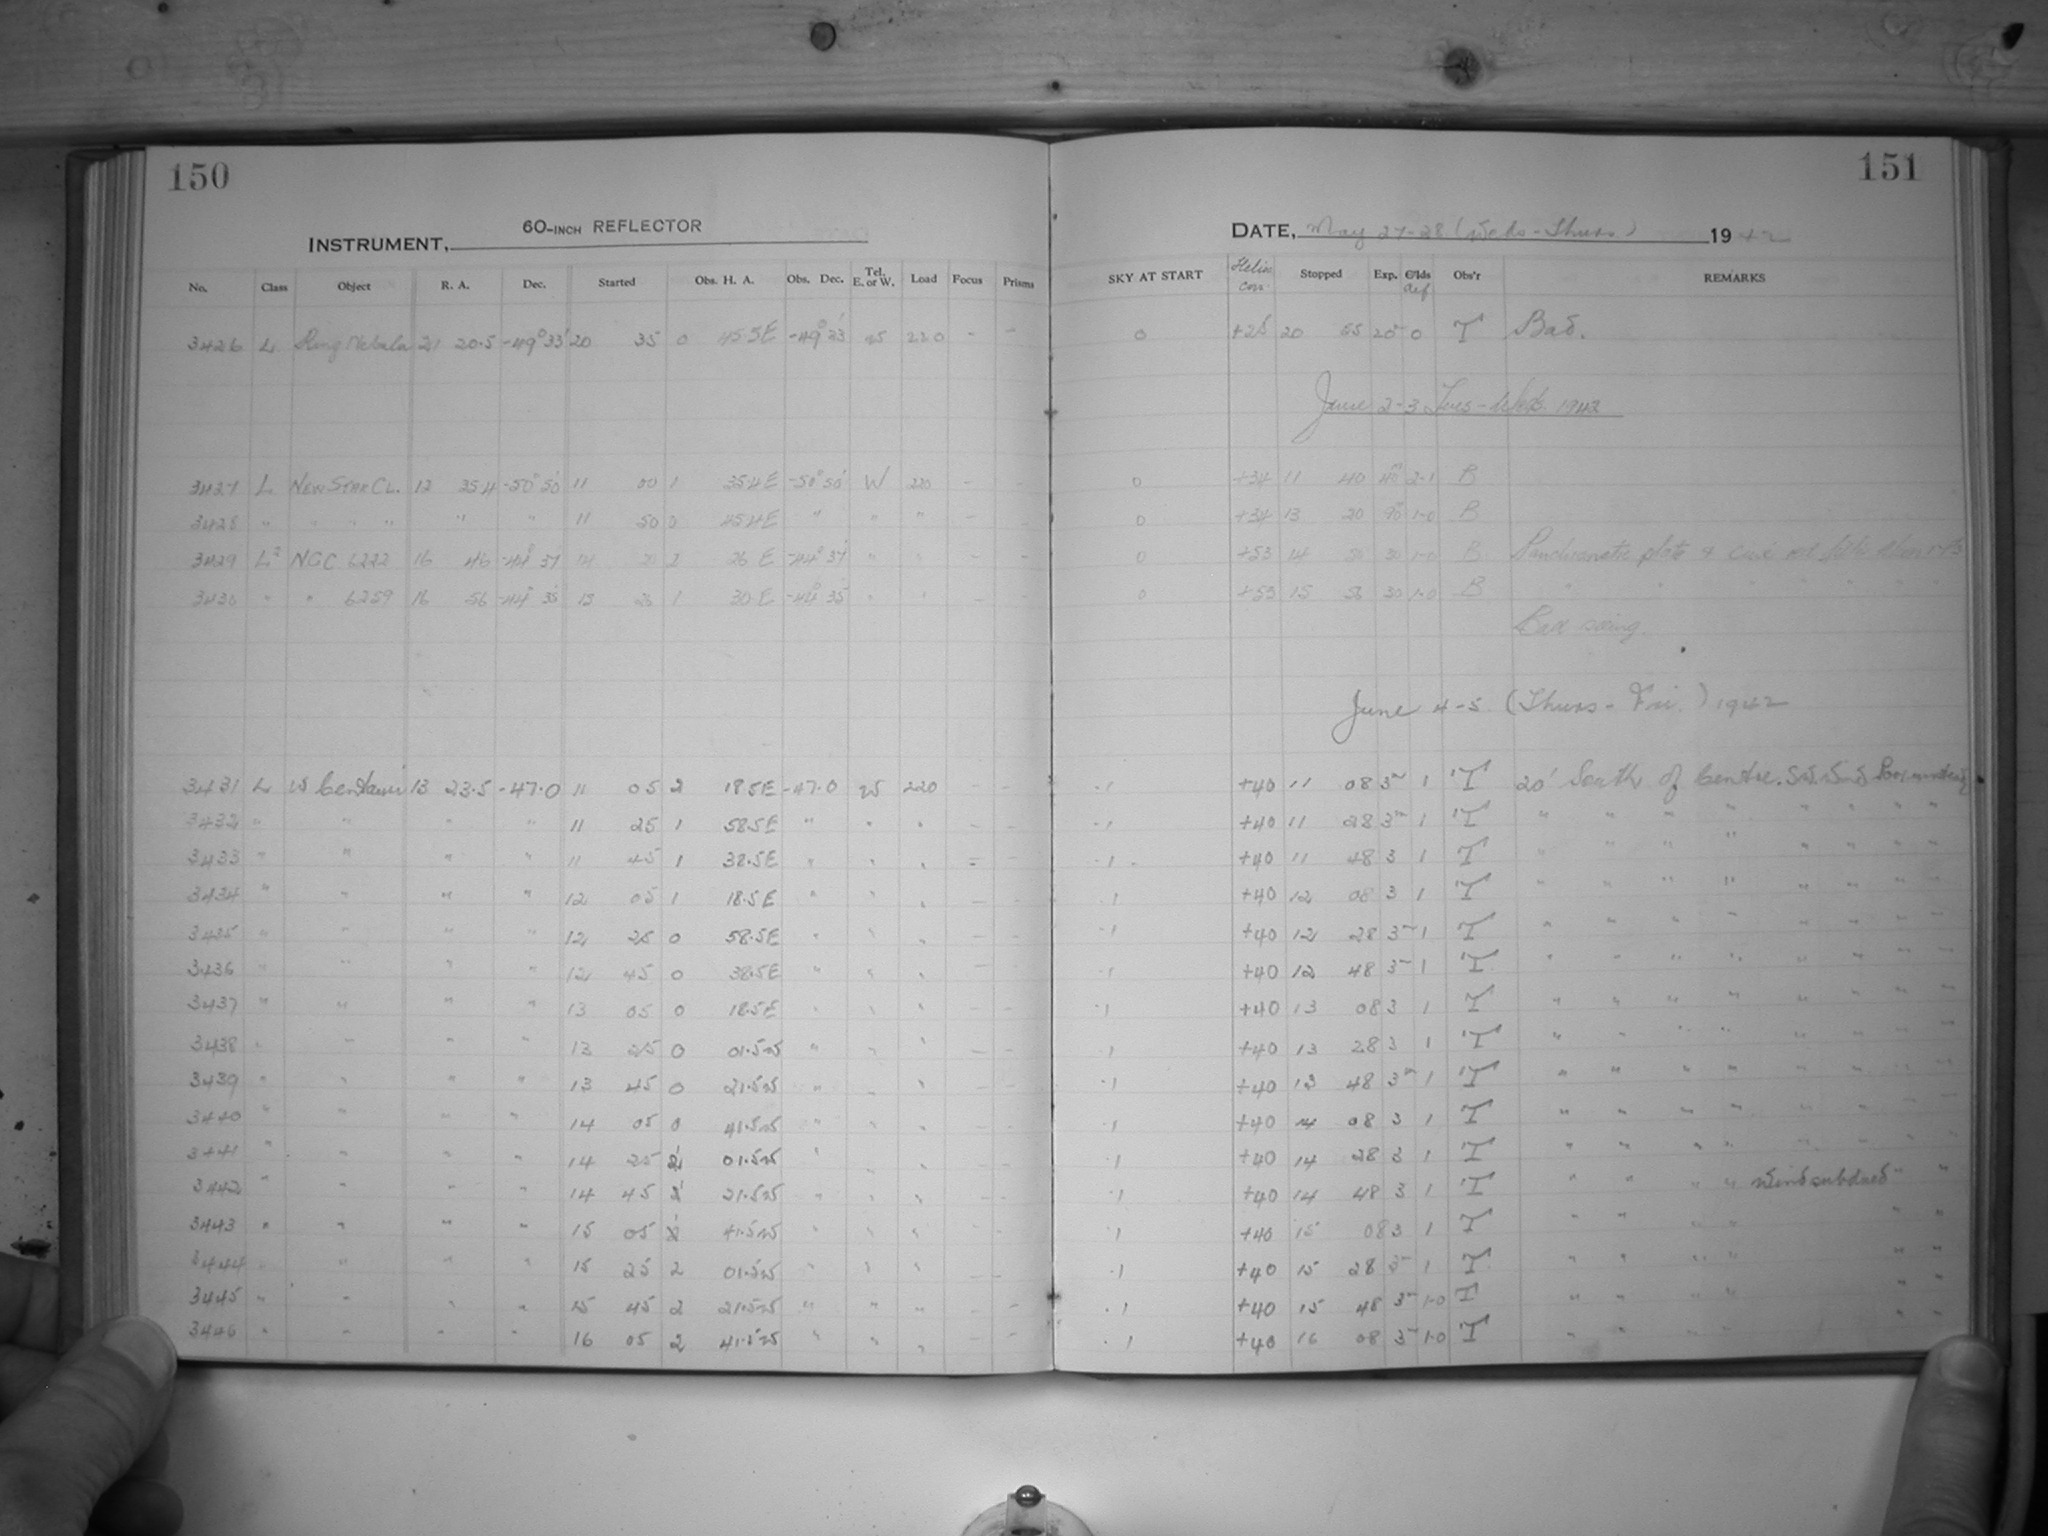 150
INSTRUMENT, 60-INCH REFLECTOR
No. Class Object R. A. Dec. Started Obs. H. A. Obs. Dec. Tel. E. or W. Load Focus Prisms
3426 L Ring Nebula 21 20.5 -49° 33' 20 35 0 45.5E -49° 33' W 220 - -
3427 L New Star Cl. 12 25.4 -50° 50' 11 00 1 35.4E -50° 50' W 220 -
3428 " " " " " " 11 50 0 45.4E " " " - -
3429 L² NGC 6222 16 46 -44° 37 26 E -44° 37' " "
3430 " " 6259 16 56 -44° 35' 1 30 E -44° 35' " " - -
3431 L W Centauri 13 23.5 -47.0 11 05 2 18.5E -47.0 W 220 - -
3432 " " " " 11 25 1 58.5E " " " - -
3433 " " " " 11 45 1 38.5E " " " - -
3434 " " " " 12 05 1 18.5E " " " - -
3435 " " " " 12 25 0 58.5E " " " - -
3436 " " " " 12 45 0 38.5E " " " - -
3437 " " " " 13 05 0 18.5E " " " - -
3438 " " " " 13 25 0 01.5W " " " - -
3439 " " " " 13 45 0 21.5W " " " - -
3440 " " " " 14 05 0 41.5W " " " - -
3441 " " " " 14 25 1 01.5W " " " - -
3442 " " " " 14 45 1 21.5W " " " - -
3443 " " " " 15 05 1 41.5W " " " - -
3444 " " " " 15 25 2 01.5W " " " - -
3445 " " " " 15 45 2 21.5W " " " - -
3446 " " " " 16 05 2 41.5W " " " - -
151
DATE, May 27-28 (Weds-Thurs) 1942
SKY AT START Helio corr. Stopped Exp. C'lds Def Obs'r REMARKS
0 +25 20 55 20 0 T Bad.
June 2-3 Tues-Weds. 1942
0 +34 11 40 40ᵐ 2-1 B
0 +34 13 20 90 1-0 B
0 +53 14 50 30 1-0 B Panchromatic plate &
0 +53 15 56 30 1-0 B " " " "
Bad seeing.
June 4-5 (Thurs-Fri.) 1942
.1 +40 11 08 3ᵐ 1 T 20' South of Centre. S.W. Wind
.1 +40 11 28 3ᵐ 1 T " " " " " " " "
.1 +40 11 48 3 1 T " " " " " " " "
.1 +40 12 08 3 1 T " " " " " " " "
.1 +40 12 28 3ᵐ 1 T " " " " " " " "
.1 +40 12 48 3ᵐ 1 T " " " " " " " "
.1 +40 13 08 3 1 T " " " " " " " "
.1 +40 13 28 3 1 T " " " " " " " "
.1 +40 13 48 3ᵐ 1 T " " " " " " " "
.1 +40 14 08 3 1 T " " " " " " " "
.1 +40 14 28 3 1 T " " " " " " " "
.1 +40 14 48 3 1 T " " " " Wind subdued " "
.1 +40 15 08 3 1 T " " " " " "
.1 +40 15 28 3ᵐ 1 T " " " " " "
.1 +40 15 48 3ᵐ 1-0 T " " " " " "
.1 +40 16 08 3ᵐ 1-0 T " " " " " "